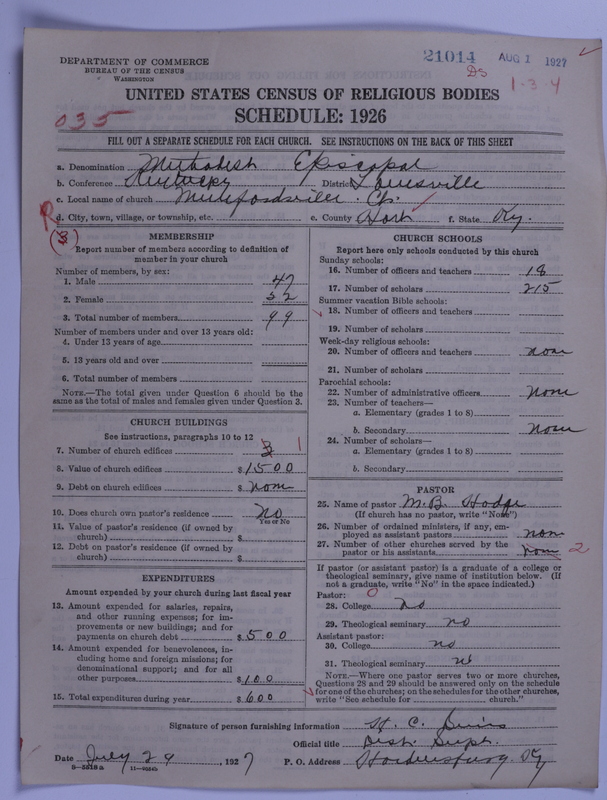 DEPARTMENT OF COMMERCE
BUREAU OF THE CENSUS
WASHINGTON
21014 AUG 1 1927
DS
1-3-4
UNITED STATES CENSUS OF RELIGIOUS BODIES
SCHEDULE: 1926
035
FILL OUT A SEPARATE SCHEDULE FOR EACH CHURCH. SEE INSTRUCTIONS ON THE BACK OF THIS SHEET
a. Denomination Methodist Episcopal
b. Conference Kentucky District Louisville
c. Local name of church Ch.
R
d. City, town, village, or township, etc. e. County Hart f. State Ky.
(3)
MEMBERSHIP
Report number of members according to definition of
member in your church
Number of members, by sex:
1. Male 47
2. Female 52
3. Total number of members 99
Number of members under and over 13 years old:
4. Under 13 years of age
5. 13 years old and over
6. Total number of members
NOTE.—The total given under Question 6 should be the
same as the total of males and females given under Question 3.
CHURCH BUILDINGS
See instructions, paragraphs 10 to 12
7. Number of church edifices 3 1
8. Value of church edifices $ 1500
9. Debt on church edifices $ none
10. Does church own pastor's residence No
Yes or No
11. Value of pastor's residence (if owned by
church) $
12. Debt on pastor's residence (if owned by
church) $
EXPENDITURES
Amount expended by your church during last fiscal year
13. Amount expended for salaries, repairs,
and other running expenses; for im-
provements or new buildings; and for
payments on church debt $ 500
14. Amount expended for benevolences, in-
cluding home and foreign missions; for
denominational support; and for all
other purposes $ 100
15. Total expenditures during year $ 600
CHURCH SCHOOLS
Report here only schools conducted by this church
Sunday schools:
16. Number of officers and teachers 18
17. Number of scholars 215
Summer vacation Bible schools:
18. Number of officers and teachers
19. Number of scholars
Week-day religious schools:
20. Number of officers and teachers none
21. Number of scholars
Parochial schools:
22. Number of administrative officers None
23. Number of teachers—
a. Elementary (grades 1 to 8)
b. Secondary None
24. Number of scholars—
a. Elementary (grades 1 to 8)
b. Secondary
PASTOR
25. Name of pastor M.B. Hodge
(If church has no pastor, write "None")
26. Number of ordained ministers, if any, em-
ployed as assistant pastors none
27. Number of other churches served by the
pastor or his assistants none 2
If pastor (or assistant pastor) is a graduate of a college or
theological seminary, give name of institution below. (If
not a graduate, write "No" in the space indicated.)
Pastor:
28. College no
29. Theological seminary no
Assistant pastor:
30. College no
31. Theological seminary no
NOTE.—Where one pastor serves two or more churches,
Questions 28 and 29 should be answered only on the schedule
for one of the churches; on the schedules for the other churches,
write "See schedule for church."
Signature of person furnishing information
Official title Dist. Supt.
Date July 29, 1927 P. O. Address Ky